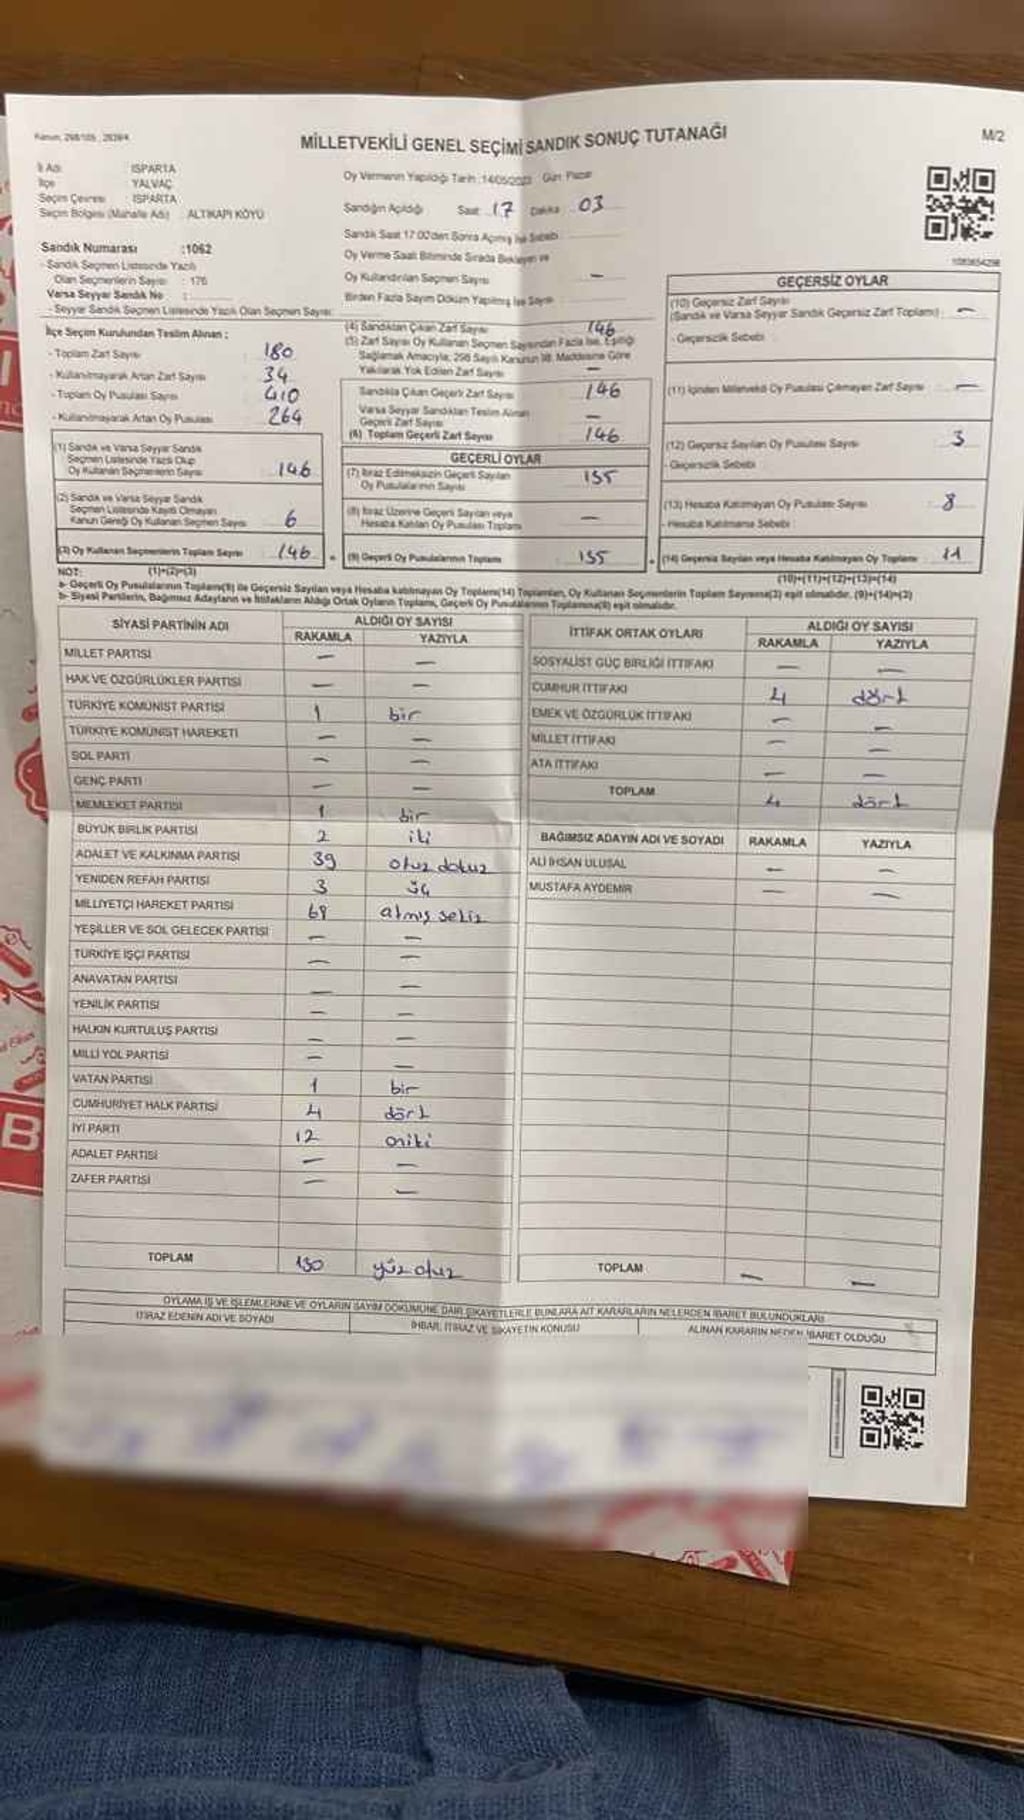 MİLLETVEKİLİ GENEL SEÇİMİ SANDIK SONUÇ TUTANAĞI
M/2
İl Adı : ISPARTA
İlçe : YALVAÇ
Seçim Çevresi : ISPARTA
Seçim Bölgesi (Mahalle Adı) : ALTIKAPI KÖYÜ
Sandık Numarası :1062
- Sandık Seçmen Listesinde Yazılı
Olan Seçmenlerin Sayısı : 176
Varsa Seyyar Sandık No :
- Seyyar Sandık Seçmen Listesinde Yazılı Olan Seçmen Sayısı:
Oy Vermenin Yapıldığı Tarih :14/05/2023 Gün: Pazar
Sandığın Açıldığı Saat: 17 Dakika: 03
Sandık Saat 17:00'den Sonra Açılmış İse Sebebi:
Oy Verme Saati Bitiminde Sırada Bekleyen ve
Oy Kullandırılan Seçmen Sayısı: —
Birden Fazla Sayım Döküm Yapılmış İse Sayısı:
İlçe Seçim Kurulundan Teslim Alınan :
- Toplam Zarf Sayısı : 180
- Kullanılmayarak Artan Zarf Sayısı : 34
- Toplam Oy Pusulası Sayısı : 410
- Kullanılmayarak Artan Oy Pusulası : 264
(1) Sandık ve Varsa Seyyar Sandık
Seçmen Listesinde Yazılı Olup
Oy Kullanan Seçmenlerin Sayısı : 146
(2) Sandık ve Varsa Seyyar Sandık
Seçmen Listesinde Kayıtlı Olmayan
Kanun Gereği Oy Kullanan Seçmen Sayısı : 6
(3) Oy Kullanan Seçmenlerin Toplam Sayısı : 146
(4) Sandıktan Çıkan Zarf Sayısı : 146
(5) Zarf Sayısı Oy Kullanan Seçmen Sayısından Fazla İse, Eşitliği
Sağlamak Amacıyla; 298 Sayılı Kanunun 98. Maddesine Göre
Yakılarak Yok Edilen Zarf Sayısı : —
Sandıkta Çıkan Geçerli Zarf Sayısı : 146
Varsa Seyyar Sandıktan Teslim Alınan
Geçerli Zarf Sayısı : —
(6) Toplam Geçerli Zarf Sayısı : 146
GEÇERLİ OYLAR
(7) İtiraz Edilmeksizin Geçerli Sayılan
Oy Pusulalarının Sayısı : 135
(8) İtiraz Üzerine Geçerli Sayılan veya
Hesaba Katılan Oy Pusulası Toplamı : —
(9) Geçerli Oy Pusulalarının Toplamı : 135
GEÇERSİZ OYLAR
(10) Geçersiz Zarf Sayısı
(Sandık ve Varsa Seyyar Sandık Geçersiz Zarf Toplamı) : —
- Geçersizlik Sebebi :
(11) İçinden Milletvekili Oy Pusulası Çıkmayan Zarf Sayısı : —
(12) Geçersiz Sayılan Oy Pusulası Sayısı : 3
- Geçersizlik Sebebi :
(13) Hesaba Katılmayan Oy Pusulası Sayısı : 8
- Hesaba Katılmama Sebebi :
(14) Geçersiz Sayılan veya Hesaba Katılmayan Oy Toplamı : 11
NOT: (1)+(2)=(3)
(10)+(11)+(12)+(13)=(14)
a- Geçerli Oy Pusulalarının Toplamı(9) ile Geçersiz Sayılan veya Hesaba katılmayan Oy Toplamı(14) Toplamları, Oy Kullanan Seçmenlerin Toplam Sayısına(3) eşit olmalıdır. (9)+(14)=(3)
b- Siyasi Partilerin, Bağımsız Adayların ve İttifakların Aldığı Ortak Oyların Toplamı, Geçerli Oy Pusulalarının Toplamına(9) eşit olmalıdır.
SİYASİ PARTİNİN ADI ALDIĞI OY SAYISI
RAKAMLA YAZIYLA
MİLLET PARTİSİ — —
HAK VE ÖZGÜRLÜKLER PARTİSİ — —
TÜRKİYE KOMÜNİST PARTİSİ 1 bir
TÜRKİYE KOMÜNİST HAREKETİ — —
SOL PARTİ — —
GENÇ PARTİ — —
MEMLEKET PARTİSİ 1 bir
BÜYÜK BİRLİK PARTİSİ 2 iki
ADALET VE KALKINMA PARTİSİ 39 otuz dokuz
YENİDEN REFAH PARTİSİ 3 üç
MİLLİYETÇİ HAREKET PARTİSİ 68 atmış sekiz
YEŞİLLER VE SOL GELECEK PARTİSİ — —
TÜRKİYE İŞÇİ PARTİSİ — —
ANAVATAN PARTİSİ — —
YENİLİK PARTİSİ — —
HALKIN KURTULUŞ PARTİSİ — —
MİLLİ YOL PARTİSİ — —
VATAN PARTİSİ 1 bir
CUMHURİYET HALK PARTİSİ 4 dört
İYİ PARTİ 12 oniki
ADALET PARTİSİ — —
ZAFER PARTİSİ — —
TOPLAM 130 yüz otuz
İTTİFAK ORTAK OYLARI ALDIĞI OY SAYISI
RAKAMLA YAZIYLA
SOSYALİST GÜÇ BİRLİĞİ İTTİFAKI — —
CUMHUR İTTİFAKI 4 dört
EMEK VE ÖZGÜRLÜK İTTİFAKI — —
MİLLET İTTİFAKI — —
ATA İTTİFAKI — —
TOPLAM 4 dört
BAĞIMSIZ ADAYIN ADI VE SOYADI RAKAMLA YAZIYLA
ALİ İHSAN ULUSAL — —
MUSTAFA AYDEMİR — —
TOPLAM — —
OYLAMA İŞ VE İŞLEMLERİNE VE OYLARIN SAYIM DÖKÜMÜNE DAİR ŞİKAYETLERLE BUNLARA AİT KARARLARIN NELERDEN İBARET BULUNDUKLARI
İTİRAZ EDENİN ADI VE SOYADI
İHBAR, İTİRAZ VE ŞİKAYETİN KONUSU
ALINAN KARARIN NEDEN İBARET OLDUĞU